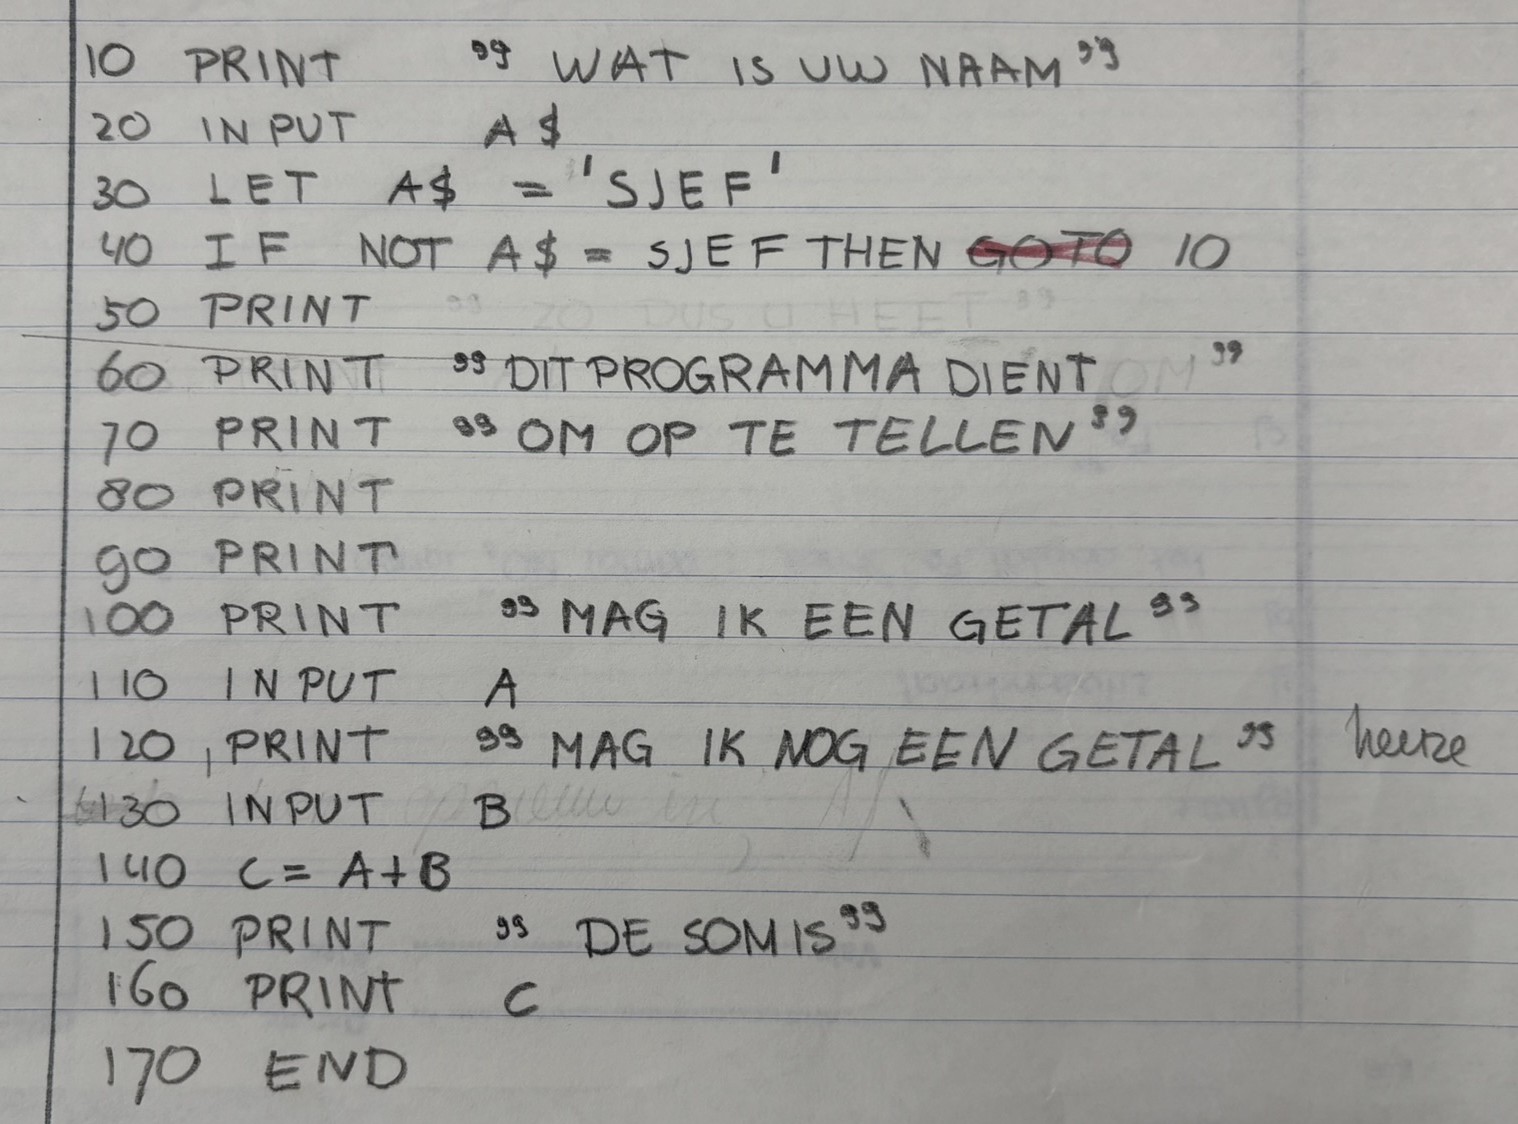 10 PRINT " WAT IS UW NAAM"
20 INPUT A$
30 LET A$ = 'SJEF'
40 IF NOT A$ = SJEF THEN GOTO 10
50 PRINT " ZO DUS U HEET "
60 PRINT "DIT PROGRAMMA DIENT OM "
70 PRINT "OM OP TE TELLEN"
80 PRINT
90 PRINT
100 PRINT "MAG IK EEN GETAL"
110 INPUT A
120 PRINT "MAG IK NOG EEN GETAL"
130 INPUT B
140 C = A+B
150 PRINT " DE SOM IS"
160 PRINT C
170 END